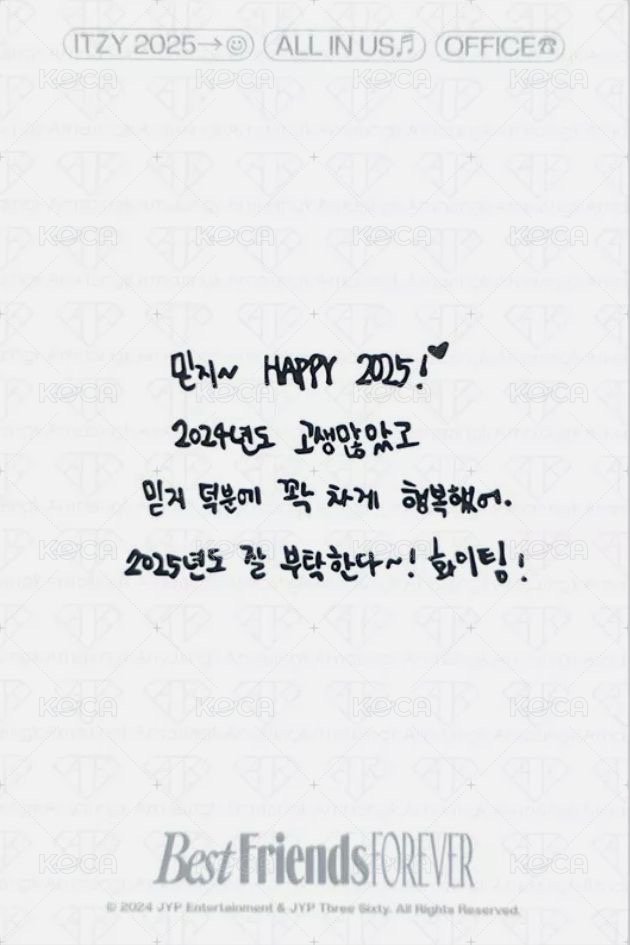 ITZY 2025→☺ ALL IN US♬ OFFICE☎
믿지~ HAPPY 2025!♥
2024년도 고생많았고
믿지 덕분에 꽉 차게 행복했어.
2025년도 잘 부탁한다~! 화이팅!
Best Friends FOREVER
© 2024 JYP Entertainment & JYP Three Sixty. All Rights Reserved.